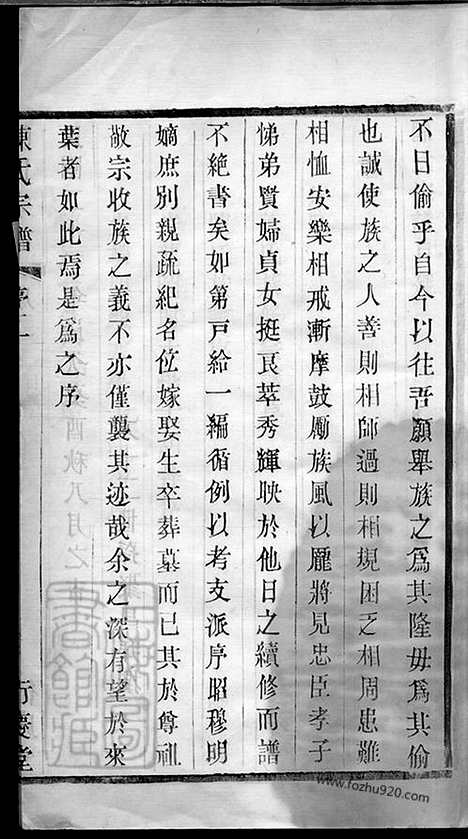 不日偷乎自今以往吾願舉族之爲其隆毋爲其偷
也誠使族之人善則相師過則相規困乏相周患難
相恤安樂相戒漸摩鼓勵族風以龐將見忠臣孝子
悌弟賢婦貞女挺良萃秀輝映於他日之續修而譜
不絶書矣如第戸給一編循例以考支派序昭穆明
嫡庶別親疏紀名位嫁娶生卒葬墓而已其於尊祖
敬宗收族之義不亦僅襲其迹哉余之深有望於來
葉者如此焉是爲之序
陳氏宗譜 序二 行慶堂
www.fozhu920.com